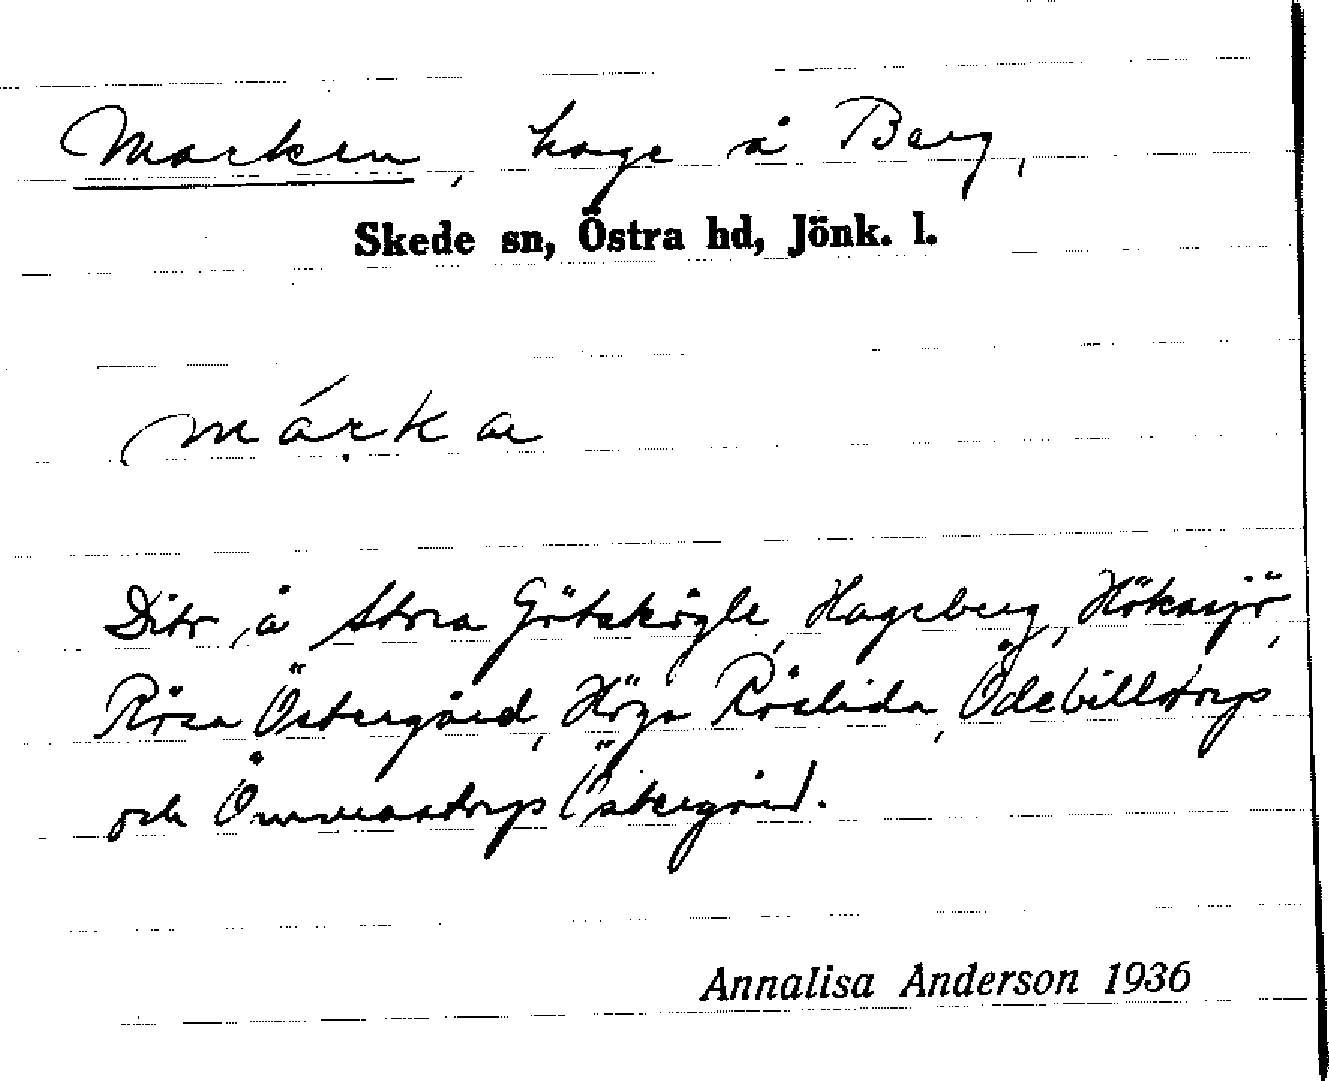 Marken, hage å Berg,
Skede sn, Östra hd, Jönk. l.
márka
Dito å Stora Götskögle, Hageberg, Hökasjö,
Rösa Östergård, Höga Röslida, Ödebillstorp
och Ömmestorp Östergård.
Annalisa Anderson 1936